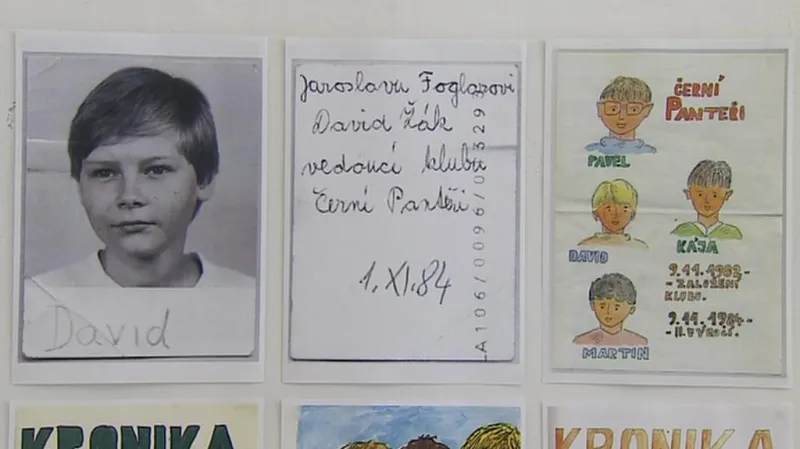 David
Jaroslavu Foglarovi
David Žák
vedoucí klubu
Černí Pantěři
1. XI. 84
A106/0096/0/329
ČERNÍ
PANTEŘI
PAVEL
DAVID
KÁJA
MARTIN
9.11.1982-
-ZALOŽENÍ
KLUBU.
9.11.1984-
-II.VÝROČÍ.
KRONIKA
KRONIKA